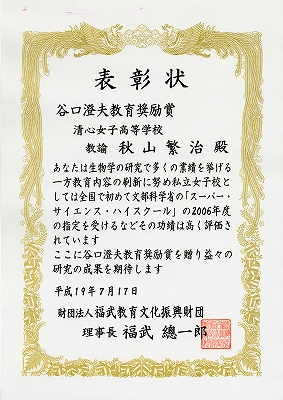 表彰状
谷口澄夫教育奨励賞
清心女子高等学校
教諭 秋山繁治殿
あなたは生物学の研究で多くの業績を挙げる
一方教育内容の刷新に努め私立女子校と
しては全国で初めて文部科学省の「スーパー・
サイエンス・ハイスクール」の2006年度
の指定を受けるなどその功績は高く評価さ
れています
ここに谷口澄夫教育奨励賞を贈り益々の
研究の成果を期待します
平成19年7月17日
財団法人福武教育文化振興財団
理事長 福武總一郎